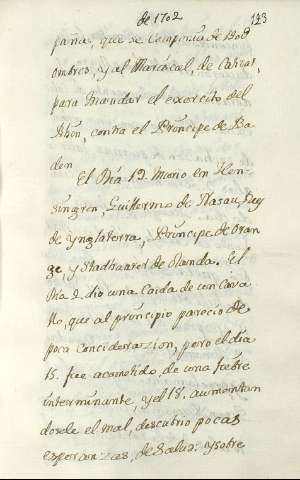 de 1702
123
paña, que se Componia de 1300
ombres, y al Mariscal, de Catinat,
para mandar el exercito del
Rhin, contra el Principe de Ba
den
El Dia 19. Murio en Ken-
singten, Guillermo de Nasau, Rey
de Ynglaterra, Principe de Oran
ge, y Stadhauter de Olanda. El
Dia 2. dio una Caida de un Cava
llo, que al principio parecio de
poca Considerazion, pero el dia
15. fue acometido, de una fiebre
interminante, y el 18. aumentan
dosele el mal, descubrio pocas
esperanzas, de Salud: y sobre